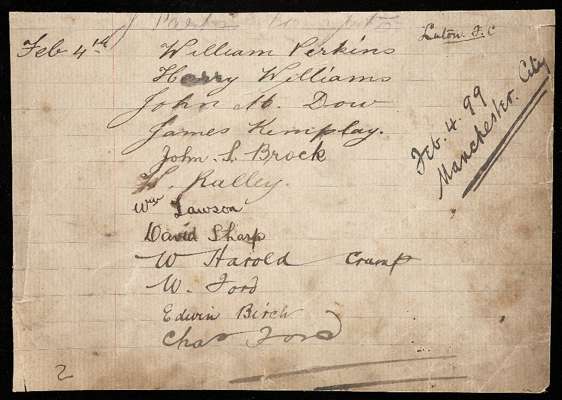 Feb 4th
Luton. F.C
William Perkins
Harry Williams
John M. Dow
James Kemplay.
John. S. Brock
Feb. 4. 99
Manchester City
Ralley.
Wm Lawson
David Sharp
W Harold Crump
W. Ford
Edwin Birch
Chas Ford
2